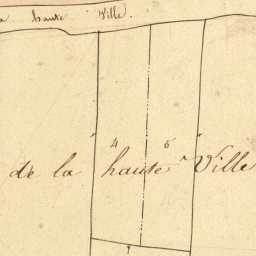 a haute Ville.
4 6
de la haute Ville